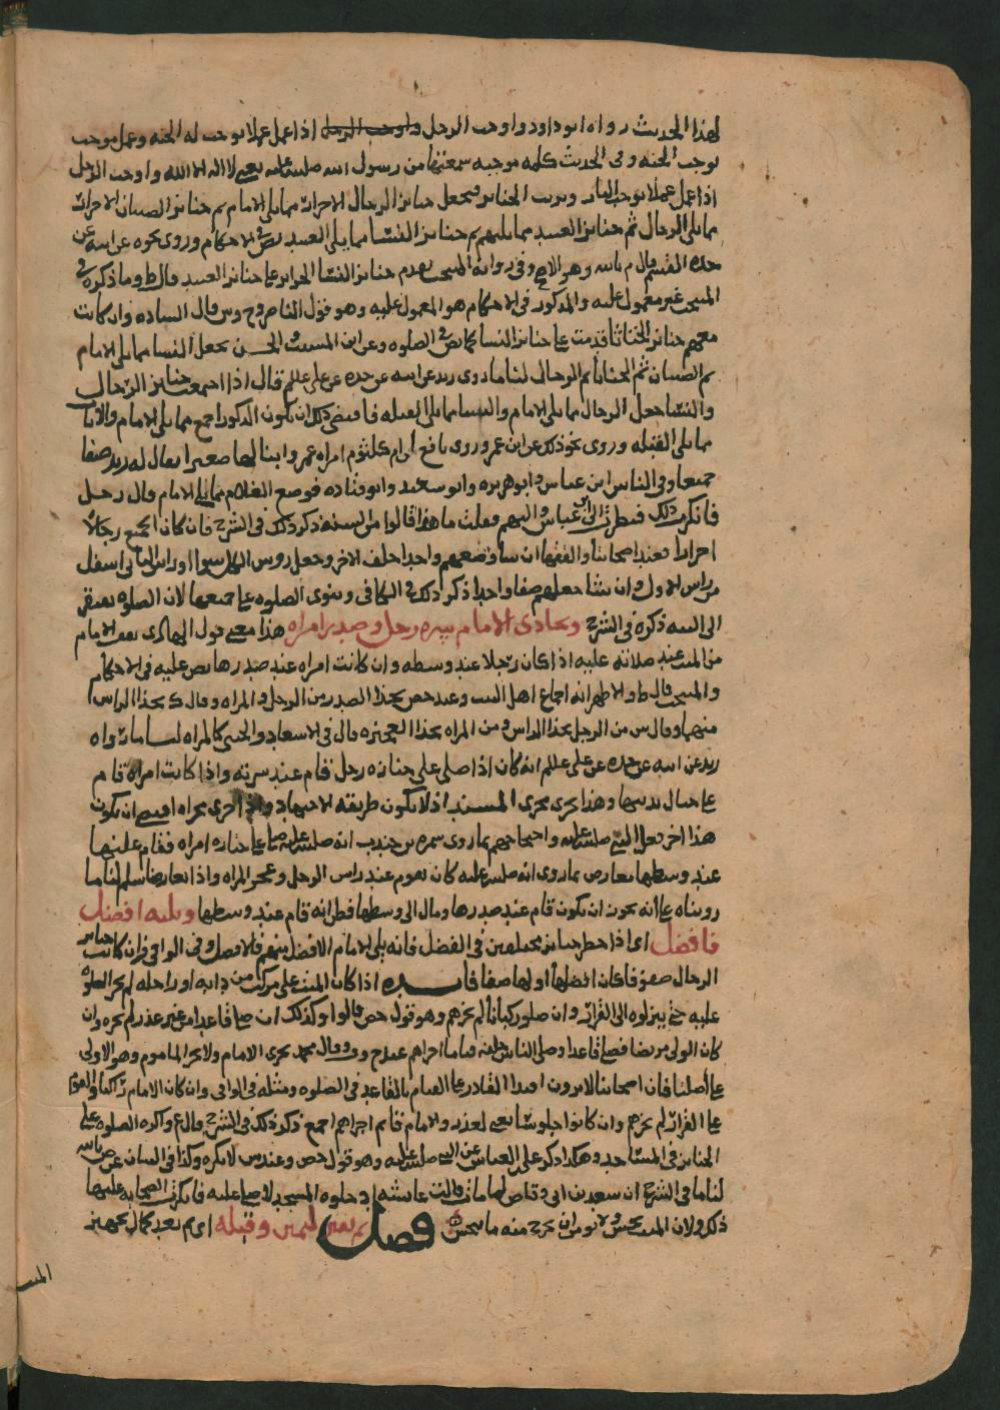 لهذا الحديث رواه ابو داود واوجب الرجل واوجب الرجل اذا عمل عملا توجب له الجنه وعمل موجب
توجب الجنه وفي الحديث كلمه موجبه سمعتها من رسول الله صلى الله عليه يعني لا اله الا الله واوجب الرجل
اذا عمل عملا توجب النار وترتب الجنائز فيجعل جنائز الرجال الاحرار مما يلي الامام ثم جنائز الصبيان الاحرار
مما يلي الرجال ثم جنائز العبيد مما يليهم ثم جنائز النسا مما يلي العبيد نص في الاحكام وروى نحوه عن ابيه عن
جده القسم قال م بالله وهو الاصح وفي روايه المنتخب يقدم جنائز النسا الحرائر على جنائز العبيد قال ط وما ذكره في
المنتخب غير معمول عليه والمذكور في الاحكام هو المعمول عليه وهو قول الناصر وح وس قال الساده وان كانت
معهم جنائز الخناثا قدمت على جنائز النسا كما نص في الصلوه وعن ابن المسيب والحسن يجعل النسا مما يلي الامام
ثم الصبيان ثم الخناثا ثم الرجال لنا ما روى زيد عن ابيه عن جده عن علي علم قال اذا اجتمعت جنائز الرجال
والنسا جعل الرجال مما يلي الامام والنسا مما يلي القبله فاقتضى ذلك ان تكون الذكور اجمع مما يلي الامام والاناث
مما يلي القبله وروى نحو ذلك عن ابن عمر وروى نافع ان ام كلثوم امراه عمر وابنا لها صغيرا يقال له زيد صفا
جميعا وفي الناس ابن عباس وابو هريره وابو سعيد وابو قتاده فوضع الغلام مما يلي الامام قال رجل
فانكرت ذلك فنظرت الى ابن عباس واليهم فقلت ما هذا قالوا من السنه ذكر ذلك في الشرح فان كان الجميع رجالا
احرارا فعند اصحابنا والفقها ان شاوا ضعهم واحدا خلف الاخر وجعل روس الكل سوا او راس الثاني اسفل
من راس الاول وان شا جعلهم صفا واحدا ذكر ذلك في الكافي وينوى الصلوه على جميعها لان الصلوه تفتقر
الى النيه ذكره في الشرح ويحاذى الامام سره رجل وصدر امراه هذا معنى قول الهادي يقف الامام
من الميت عند صلاته عليه اذا كان رجلا عند وسطه وان كانت امراه عند صدرها نص عليه في الاحكام
والمنتخب قال ط والاظهر انه اجماع اهل البيت وعند حص بحذا الصدر من الرجل والمراه وقال ك بحذا الراس
منهما وقال س من الرجل بحذا الراس ومن المراه بحذا العجيزه قال في الاسعاد والخنثى كالمراه لنا ما رواه
زيد عن ابيه عن جده عن علي علم انه كان اذا صلى على جنازه رجل قام عند سرته واذا كانت امراه قام
على حيال ثدييها وهذا يجرى مجرى المسند اذ لا يكون طريقه الاجتهاد واذا جرى مجراه اقتضى ان يكون
هذا اخر فعل النبي صلى الله عليه واحتجاجهم بما روى سمره بن جندب انه صلى الله عليه صلى على جنازه امراه فقام عليها
عند وسطها معارض بما روى انه صلى الله عليه كان يقوم عند راس الرجل وعجز المراه واذا تعارضا سلم لنا ما
رويناه على انه يجوز ان يكون قام عند صدرها ومال الى وسطها فظن انه قام عند وسطها ويليه افضل
فافضل اى اذا حضر جنائز مختلفين في الفضل فانه يلي الامام الافضل منهم فالافضل وفي الوافي فان كانت جنائز
الرجال صفوفا كان افضلها اولها صفا فايـــده اذا كان الميت على مركب من دابه او راحله لم يجز الصلوه
عليه حتى ينزلوه الى القرار وان صلوا ركبانا لم يجزهم وهو قول حص قالوا وكذلك ان صلى قاعدا من غير عذر لم يجزه وان
كان الولي مريضا فصلى قاعدا وصلى الناس خلفه قياما اجزاهم عند ح وف وقال محمد يجزى الامام ولا يجزى الماموم وهو الاولى
على اصلنا فان اصحابنا لا يرون اقتدا القادر على القيام بالقاعد في الصلوه ومثله في الوافي وان كان الامام راكبا والقوم
على القرار لم يجزهم وان كانوا جلوسا يعني لعذر والامام قائم اجزاهم اجمع ذكر ذلك في الشرح قال ع واكره الصلوه على
الجنائز في المساجد وهكذا ذكر على العباس عن النبي صلى الله عليه وهو قول حص وعند س لا يكره وكذا في البيان عن ص بالله
لنا ما في الشرح ان سعد بن ابي وقاص لما مات قالت عائشه ادخلوه المسجد لاصلي عليه فانكرت الصحابه عليها
ذلك ولان الميت نجس ولا يومن ان يخرج منه ما ينجسه فصل ثم يقبر ليمين وقبله اى ثم بعد كمال تجهيز
الميت